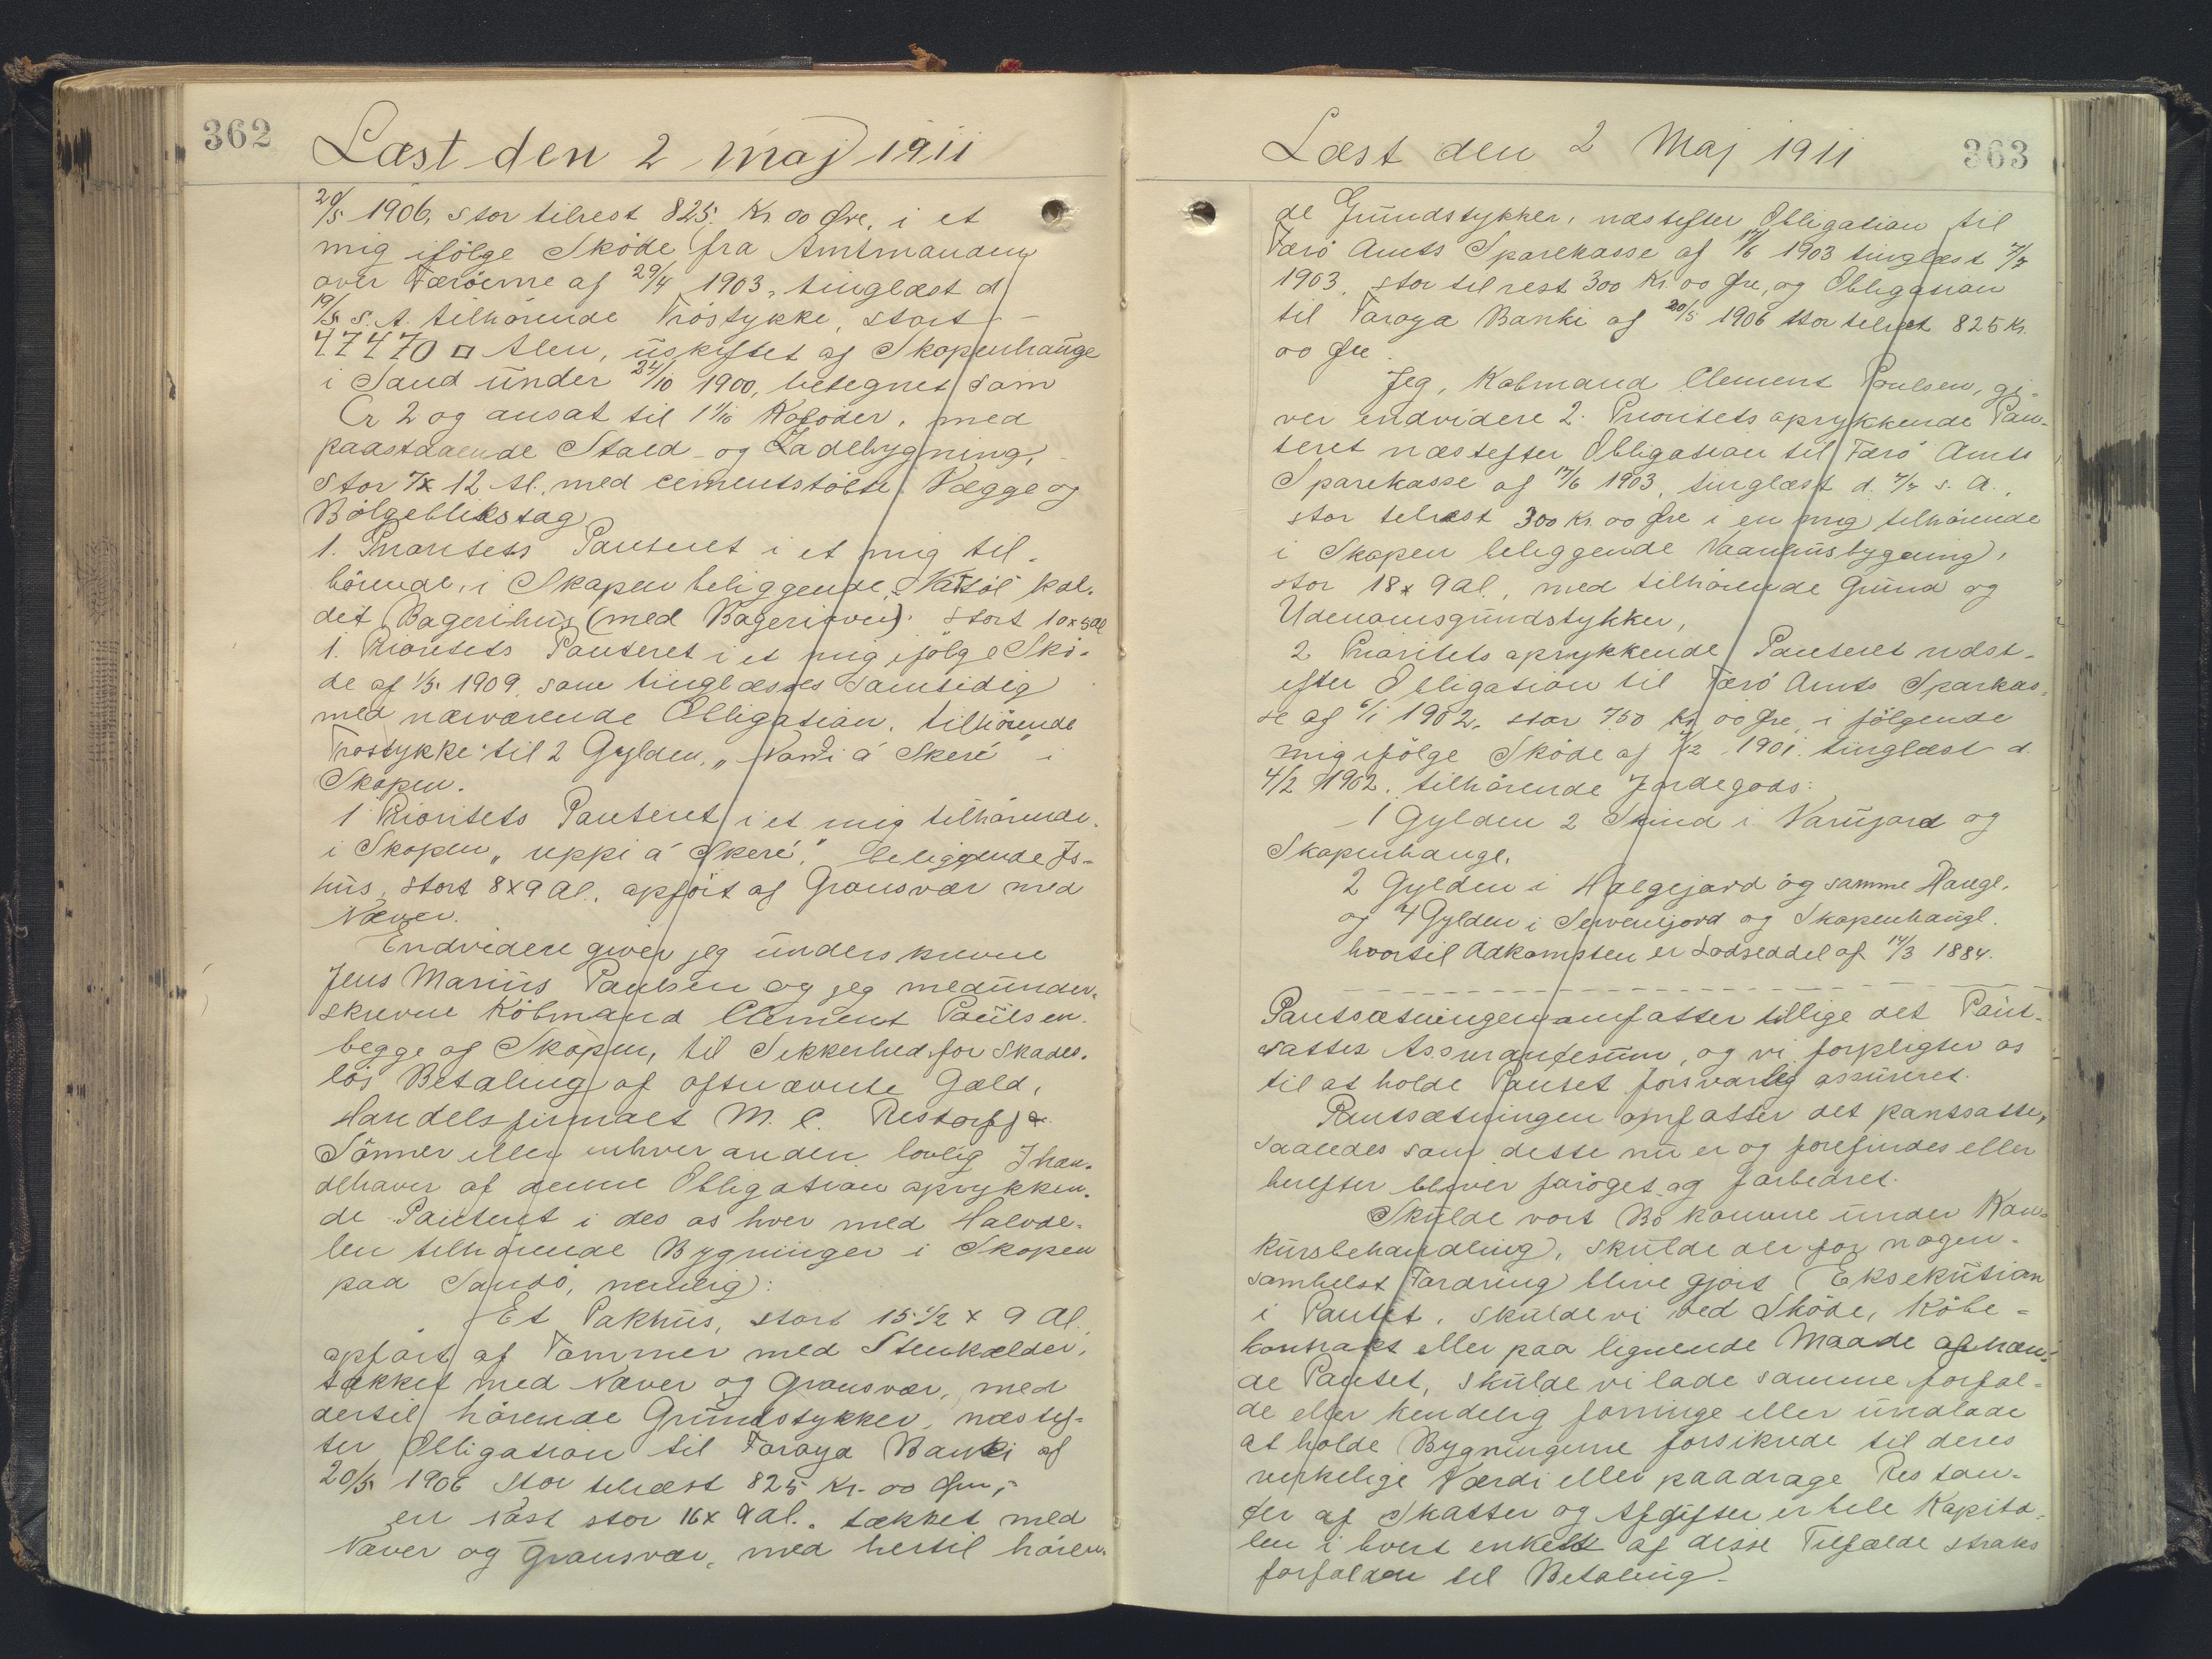 362
Læst den 2 maj 1911
20/5 1906, stor tilrest 825. Kr 00 Øre, i et
mig ifölge Sköde fra Amtmanden
over Færöerne af 29/4 1903, tinglæst d.
19/5 s. A. tilhörende Tröstykke, stort -
47470 □ Alen, üskiftet af Skopenhauge
i Sand ünder 24/10 1900, betegnet som
Cr 2 og ansat til Kofoder, med
paastaaende Stald- og Ladebygning,
stor 7 x 12 Al., med cementstöbte Vægge og
Bölgeblikstag
1. Prioritets Panteret i et mig til-
hörende, i Skopen beliggende, kal-
det Bagerihüs (med Bageriovn). stort 10 x 5 al
1. Prioritets Panteret i et mig ifölge Skö-
de af 1/5 1909, som tinglæses samtidig
med nærværende Obligation, tilhörende
Tröstykke til 2 Gylden, " á Skeré" i
Skopen.
1 Prioritets Panteret i et mig tilhörende,
i Skopen "uppi á Skeré," beliggende Is-
hüs, stort 8 x 9 Al. opfört af Gronsvær med
Næver.
Endvidere giver jeg ünderskrevne
Jens Mariüs Paulsen og jeg medünder-
skrevne Köbmand Clement Paülsen.
begge af Skopen, til Sikkerhed for skades-
lös Betaling af oftnævnte Gæld,
Handelsfirmaet M. C. Restorff &
Sönner eller enhver anden lovlig Ihæn-
dehaver af denne Obligation oprykken-
de Panteret i des os hver med Halvde-
len tilhörende Bygninger i Skopen
paa Sandö, nemlig:
Et Pakhüs, stort 15 1/2 x 9 Al.
opfört af Tömmer med Stenkælder,
tækket med Næver og Gronsvær, med
dertil hörende Gründstykker, næstef-
ter Obligation til Föroya Banki af
20/5 1906 stor tilrest 825 Kr. 00 Öre,
en Nast stor 16 x 9 al. tækket med
Næver og Gronsvær, med hertil hören-
Læst den 2 Maj 1911
363
de Gründstykker, næstefter Obligation til
Færö Amts Sparekasse af 17/6 1903 tinglæst 7/7
1903, stor tilrest 300 Kr. 00 Øre, og Obligation
til Föroya Banki af 20/5 1906 stor tilrest 825 Kr.
00 Øre.
Jeg, Köbmand Clement Poulsen, gi-
ver endvidere 2. Prioritets oprykkende Pan-
teret næstefter Obligation til Færö Amts
Sparekasse af 17/6 1903, tinglæst d. 7/7 s. A.,
stor tilrest 300 Kr. 00 Øre i en mig tilhörende
i Skopen beliggende Vaanhüsbygning,
stor 18 x 9 al., med tilhörende Grund og
Udenomsgründstykker,
2 Prioritets oprykkende Panteret næst-
efter Obligation til Færö Amts Sparkas-
se af 6/1 1902, stor 750 Kr 00 Øre, i fölgende
mig ifölge Sköde af 1901. tinglæst d.
4/2 1902. tilhörende Jordegods:
1 Gylden 2 Skind i Varügard og
Skopenhauge,
2 Gylden i Halgejard og samme Hauge,
og 4 Gylden i Servenjord og Skopenhaüge.
hvortil Adkomsten er Lodseddel af 14/3 1884.
Pantsætningen omfatter tillige det Pant-
sattes Assurancesum, og vi forpligter os
til at holde Pantet forsvarlig assüreret.
Pantsætningen omfatter det pantsatte,
saaledes som dette nü er og forefindes eller
herefter bliver foröget og forbedret.
Skülde vort Bo komme ünder Kon-
kürsbehandling, skülde der for nogen-
somhelst Fordring blive gjort Eksekütion
i Pantet, skülde vi ved Sköde, Köbe-
kontrakt eller paa lignende Maade afhæn-
de Pantet, skülde vi lade samme forfal-
de eller kendelig forringe eller undlade
at holde Bygningerne forsikrede til deres
virkelige Værdi eller paadrage Restan-
cer af Skatter og Afgifter er hele Kapita-
len i hvert enkelt af disse Tilfælde straks
forfalden til Betaling.